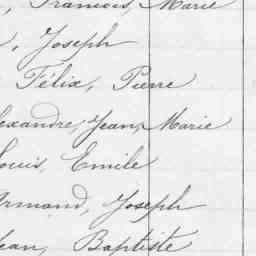 , François, Marie
, Joseph
Félix, Pierre
lexandre, Jean, Marie
Louis, Emile
Armand, Joseph
Jean, Baptiste